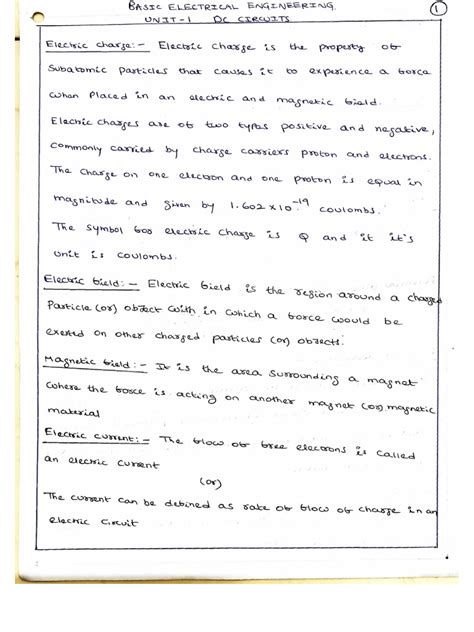 BASIC ELECTRICAL ENGINEERING.
1
UNIT-1 DC CIRCUITS
Electric charge:- Electric charge is the property of
Subatomic Particles that causes it to experience a force
when Placed in an electric and magnetic field.
Electric charges are of two types positive and negative,
commonly carried by charge carriers proton and electrons.
The charge on one electron and one proton is equal in
magnitude and given by 1.602 x 10⁻¹⁹ coulombs.
The symbol for electric charge is Q and it it's
unit is coulombs.
Electric field:- Electric field is the region around a charged
Particle (or) object with in which a force would be
exerted on other charged particles (or) objects.
Magnetic field:- It is the area surrounding a magnet
where the force is acting on another magnet (or) magnetic
material
Electric current:- The flow of free electrons is called
an electric current
(or)
The current can be defined as rate of flow of charge in an
electric circuit